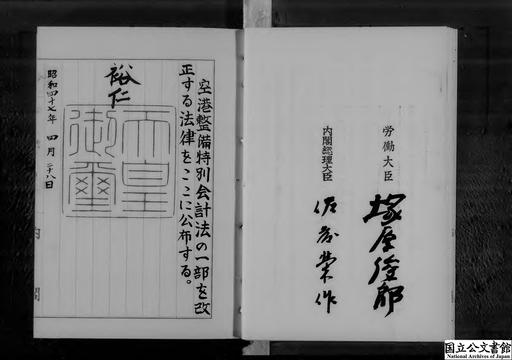 労働大臣
塚原俊郎
内閣総理大臣
佐藤榮作
空港整備特別会計法の一部を改
正する法律をここに公布する。
裕仁
天皇
御璽
昭和四十七年 四月 二十八日
内閣
国立公文書館
National Archives of Japan